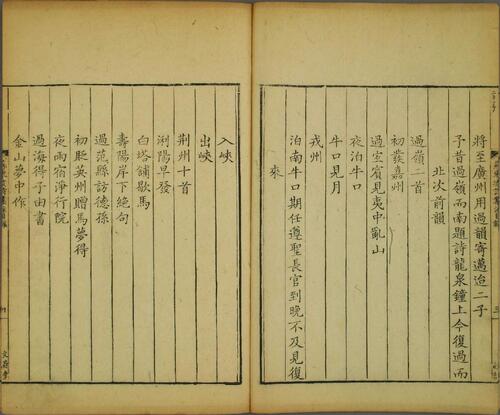 將至廣州用過韻寄邁迨二子
予昔過嶺而南題詩龍泉鐘上今復過而
北次前韻
過嶺二首
初發嘉州
過宜賓見夷中亂山
夜泊牛口
牛口見月
戎州
泊南牛口期任遵聖長官到晚不及見復
來
入峽
出峽
荆州十首
浰陽早發
白塔鋪歇馬
壽陽岸下絶句
過范縣訪德孫
初貶英州贈馬夢得
夜雨宿淨行院
過海得子由書
金山夢中作